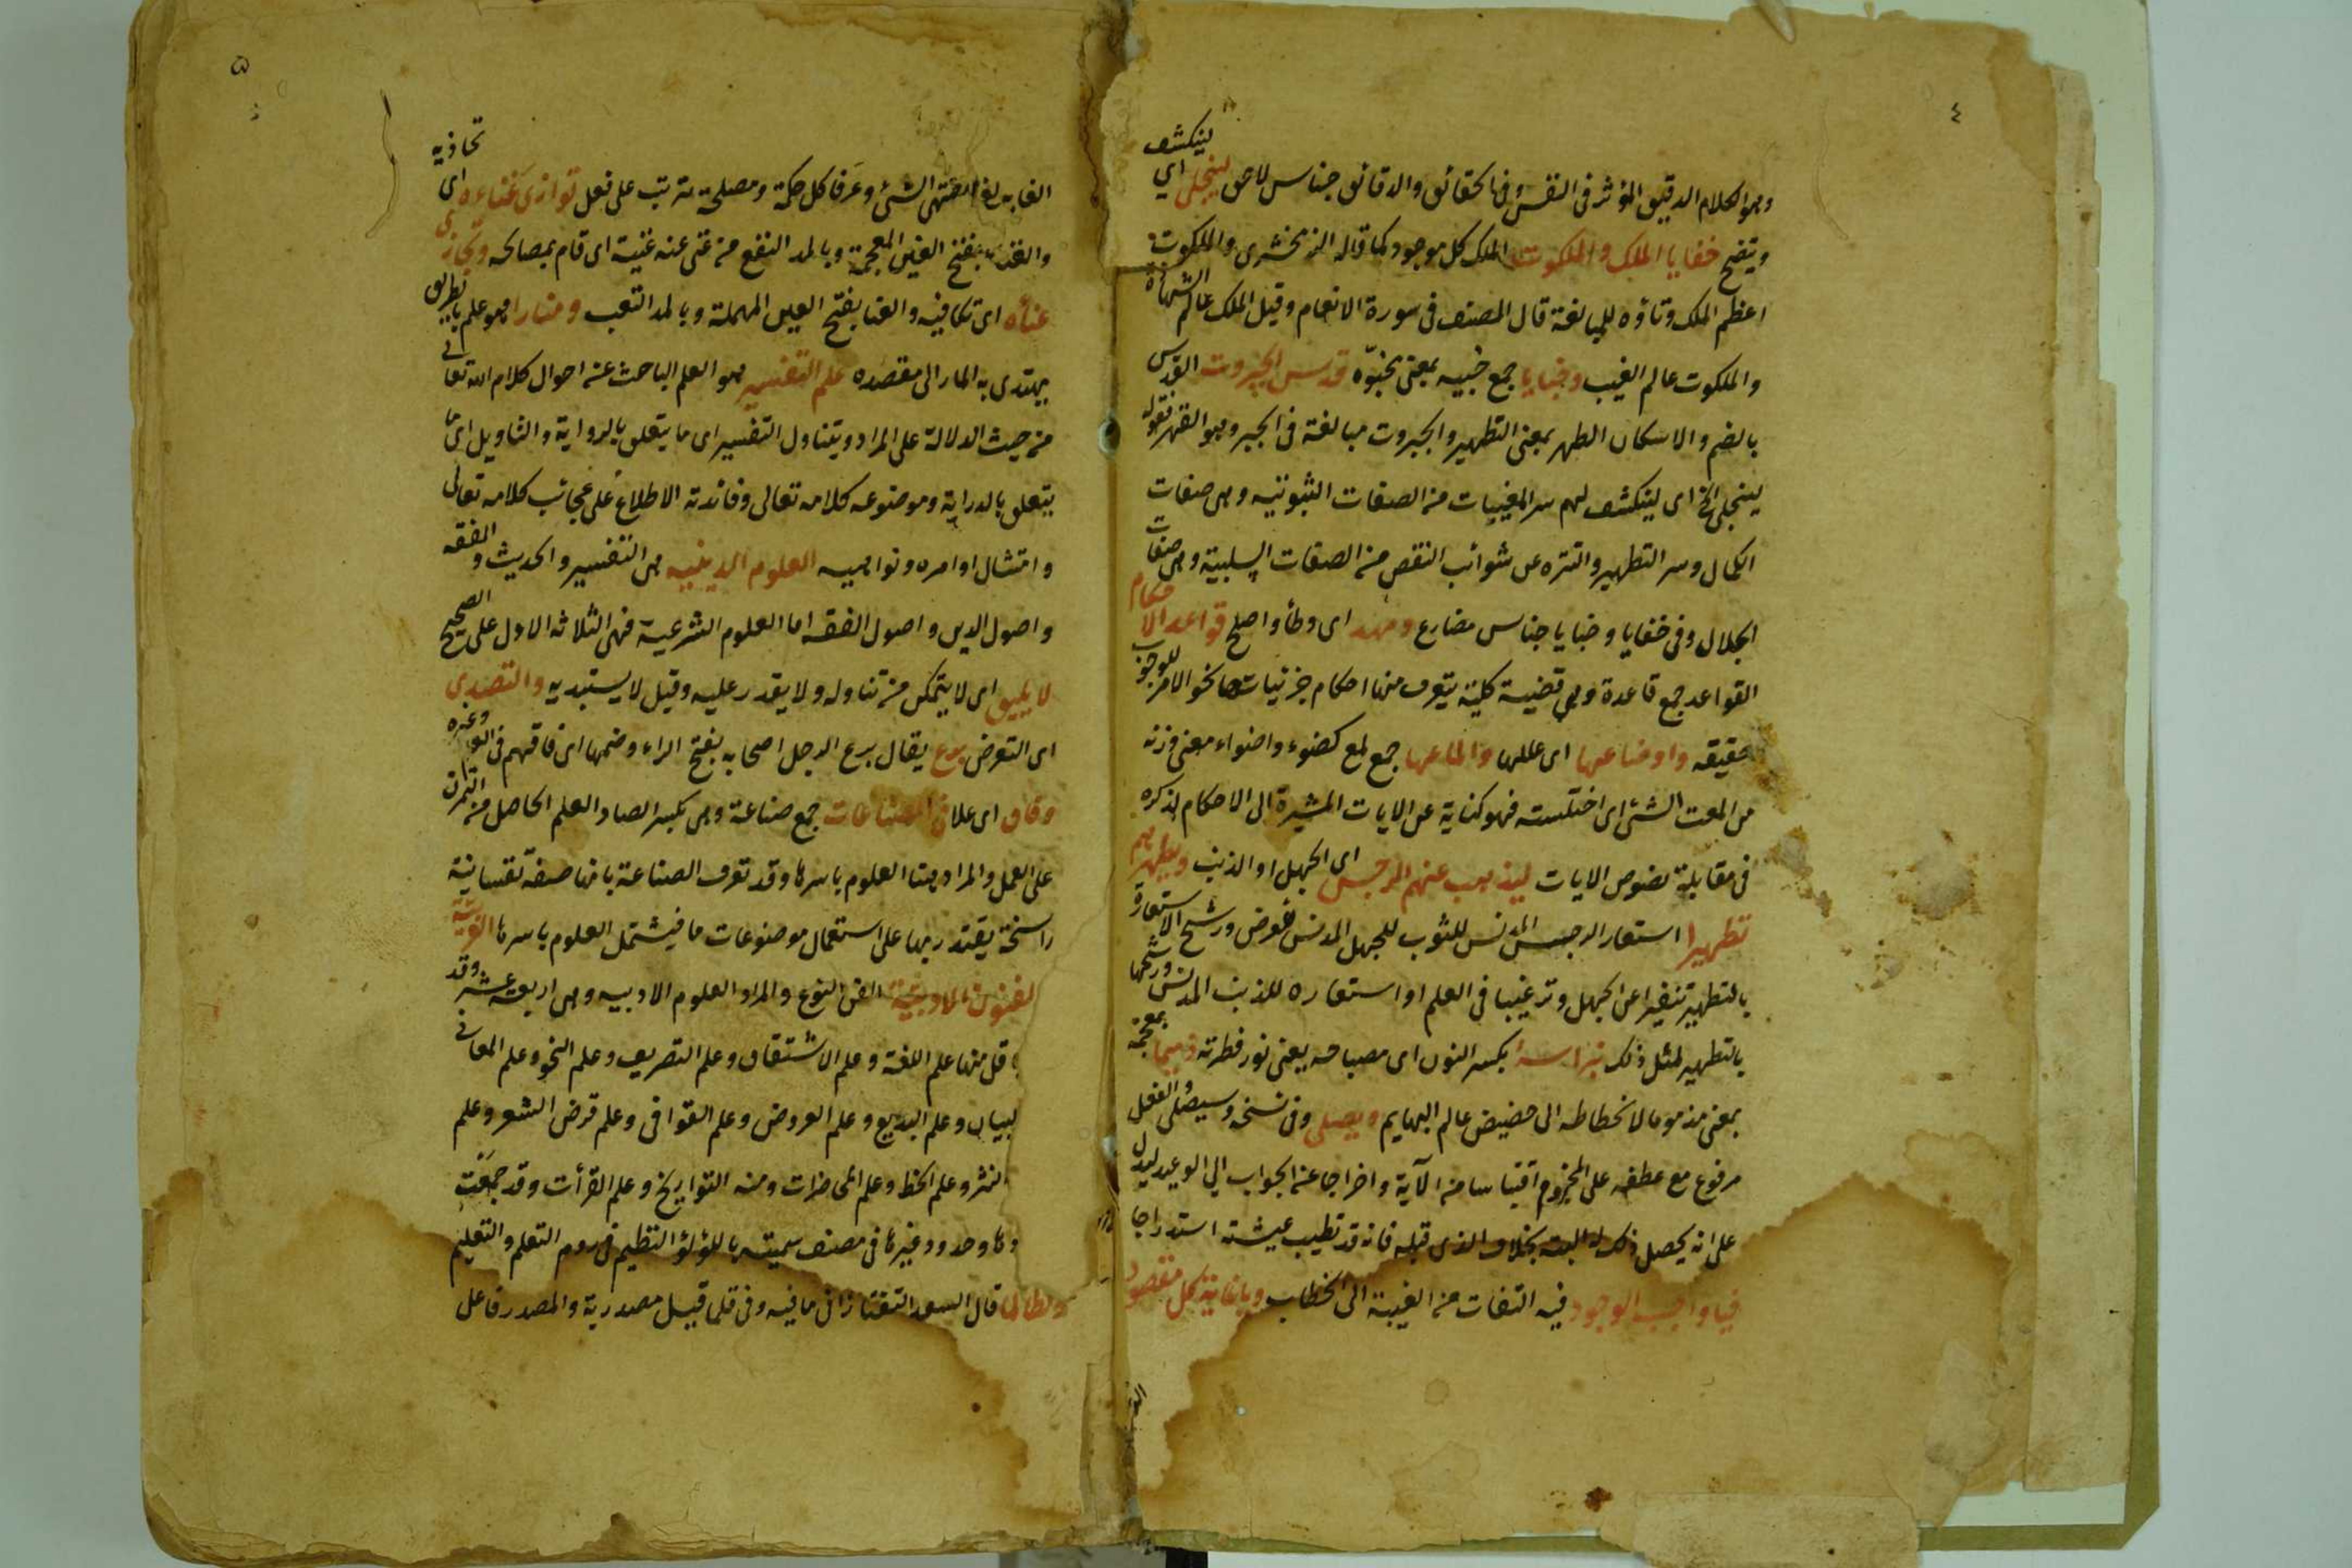 ٤
وهو الكلام الدقيق المؤثر فى النفس وفى الحقائق والدقائق جناس لاحق لينجلى اي لينكشف
ويتضح خفايا الملك والملكوت الملك كل موجود كما قاله الزمخشرى والملكوت
اعظم الملك وتاؤه للمبالغة قال المصنف فى سورة الانعام وقيل الملك عالم الشهادة
والملكوت عالم الغيب وخبايا جمع خبيه بمعنى مخبوّه قدس الجبروت القدس
بالضم والاسكان الطهر بمعنى التطهير والجبروت مبالغة فى الجبر وهو القهر فقوله
لينجلى الخ اى لينكشف لهم سر المغيبات من الصفات الثبوتيه وهى صفات
الكمال وسر التطهير والتنزه عن شوائب النقص من الصفات السلبية وهى صفات
الجلال وفى خفايا وخبايا جناس مضارع ومهد اى وطأ واصلح قواعد الاحكام
القواعد جمع قاعدة وهى قضية كلية يتعرف منها احكام جزئيات نحو الامر للوجوب
حقيقه واوضاعها اى عللها والماعها جمع لمع كضوء واضواء معنى وزنه
من المعت الشئ اى اختلسته فهو كناية عن الايات المشيرة الى الاحكام لذكره
فى مقابلة نصوص الايات ليذهب عنهم الرجس اى الجهل او الذنب ويطهرهم
تطهيرا استعار الرجس المدنس للثوب للجهل المدنس للعرض ورشح الاستعارة
بالتطهير تنفيرا عن الجهل وترغيبا فى العلم او استعاره للذنب المدنس ورشحها
بالتطهير لمثل ذلك نبراسه بكسر النون اى مصباحه يعنى نور فطرته ذميما بمعجمة
بمعنى مذموما لانحطاطه الى حضيض عالم البهايم ويصلى وفى نسخه وسيصلى الفعل
مرفوع مع عطفه على المجزوم اقتباسا من الآية واخراجا عن الجواب الى الوعيد ليدل
على انه يحصل ذلك له البته بخلاف الذى قبله فانه قد تطيب عيشته استدراجا
فيا واجب الوجود فيه التفات من الغيبة الى الخطاب ويا غاية كل مقصود
٥
الغايه لغة منتهى الشئ وعرفا كل حكمة ومصلحة تترتب على فعل توازى غناءه اى تحاذيه
والغناء بفتح الغين المعجمة وبالمد النفع من غنى عنه غنية اى قام بمصالحه وتجازى
عناه اى تكافيه والعنا بفتح العين المهملة وبالمد التعب ومنارا هو علم بالطريق
يهتدى به المار الى مقصده علم التفسير هو العلم الباحث عن احوال كلام الله تعالى
من حيث الدلالة على المراد ويتناول التفسير اى ما يتعلق بالرواية والتاويل اى ما
يتعلق بالدراية وموضوعه كلامه تعالى وفائدته الاطلاع على عجائب كلامه تعالى
وامتثال اوامره ونواهيه العلوم الدينيه هى التفسير والحديث والفقه
واصول الدين واصول الفقه اما العلوم الشرعية فهى الثلاثه الاول على الصحيح
لا يليق اى لا يتمكن من تناوله ولا يقدر عليه وقيل لا يستبد به والتصدى
اى التعرض برع يقال برع الرجل اصحابه بفتح الراء وضمها اى فاقهم فى العلم وغيره
وفاق اى علا فى الصناعات جمع صناعة وهى بكسر الصاد العلم الحاصل من التمرن
على العمل والمراد هنا العلوم باسرها وقد تعرف الصناعة بانها صفة نفسانية
راسخة يقتدر بها على استعمال موضوعات ما فيشتمل العلوم باسرها العربية
الفنون الادبية الفن النوع والمراد العلوم الادبيه وهى اربعة عشر وقد
قل منها علم اللغة وعلم الاشتقاق وعلم التصريف وعلم النحو وعلم المعانى
البيان وعلم البديع وعلم العروض وعلم القوافى وعلم قرض الشعر وعلم
النثر وعلم الخط وعلم المحاضرات ومنه التواريخ وعلم القرأت وقد جمعت
وحدود غيرها فى مصنف سميته باللؤلؤ النظيم فى روم التعلم والتعليم
ولطالما قال السعد التفتازانى ما فيه وفى قلما قيل مصدرية والمصدر فاعل